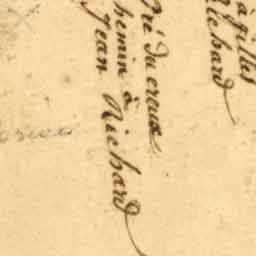 à gilles
Richard
Pré du creux
chemin à
Jean Richard